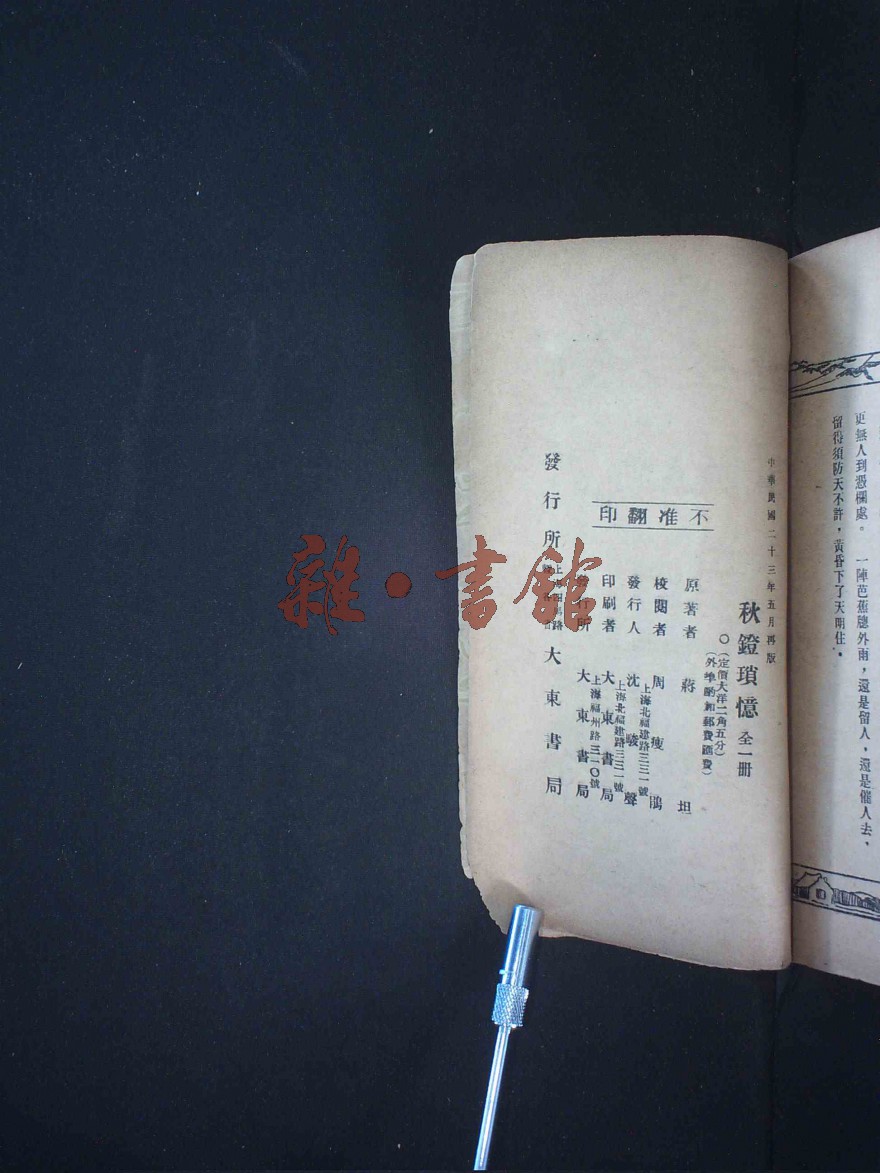 更無人到憑欄處。　一陣芭蕉牕外雨，還是留人，還是催人去，
留得須防天不許，黃昏下了天明住。
中華民國二十三年五月再版
秋鐙瑣憶 全一冊
○（定價大洋二角五分）
（外埠酌加郵費匯費）
不准翻印
原著者 蔣坦
校閱者 周瘦鵑
上海北福建路三三一號
發行人 沈駿聲
上海北福建路三三一號
印刷者 大東書局
上海福州路三一〇號
發行所 大東書局
發行所 大東書局
雜·書館